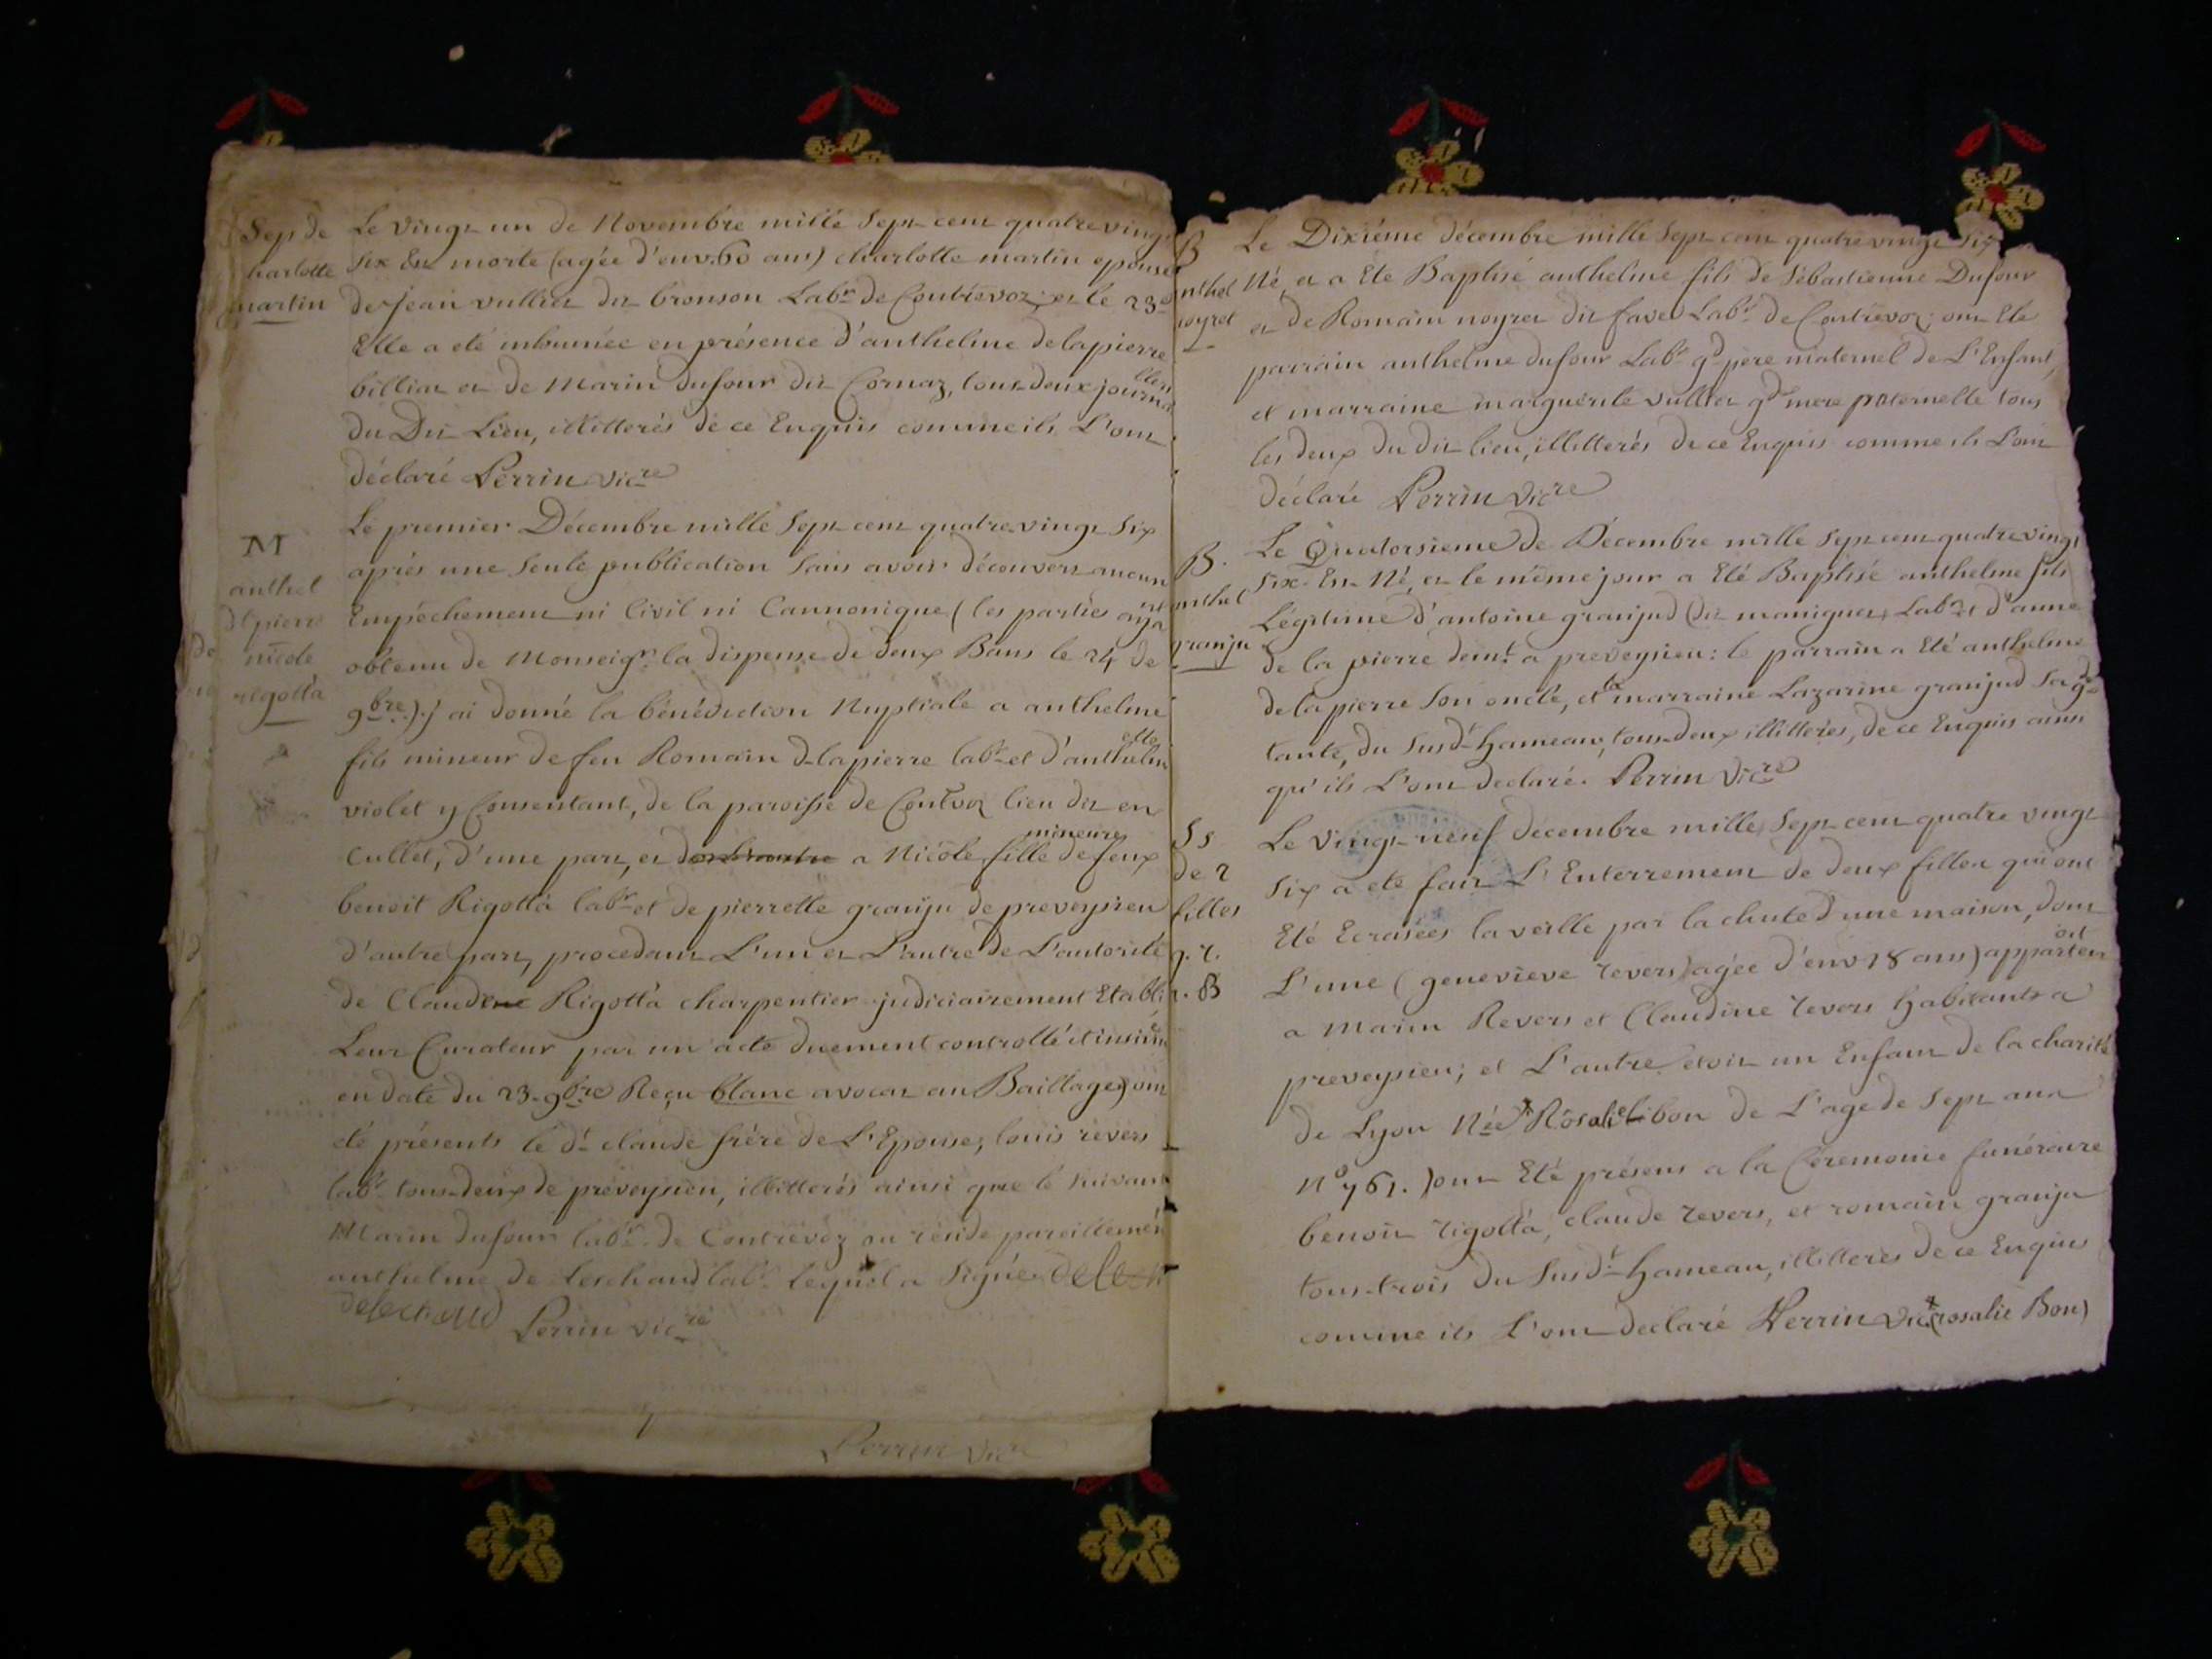 Sep de
charlotte
martin
Le vingt un de Novembre mille sept cent quatre vingt
six Est morte (agée d'env. 60 ans) charlotte martin epouse
de Jean vulliet dit bronson Labr de Contrevoz; et le 23e
Elle a eté inhumée en présence d'anthelme delapierre
billiat et de Marin dufour dit Cornaz, tous deux journalliers
du Dit Lieu, illitterés de ce Enquis comme ils L'ont
déclaré Perrin vicre
M
anthel
Dlpierre
nicole
rigotta
Le premier Décembre mille sept cent quatre-vingt six
après une seule publication sans avoir découvert aucun
Empêchement ni Civil ni Cannonique (les parties ayant
obtenu de Monseigr la dispense de deux Bans le 24 de
9bre) j'ai donné la bénédiction Nuptiale a anthelme
fils mineur de feu Romain Dlapierre labr et d'anthelmette
violet y Consentant, de la paroisse de Contrvoz lieu dit en
Cullet, d'une part, et a Nicole fille mineure de feux
benoit Rigotta labr et de pierrette granju de preveysieu
d'autre part, procedant L'un et L'autre de L'autorité
de Claude Rigotta charpentier judiciairement Etabli
Leur Curateur par un acte duement controllé et insinué
en date du 23. 9bre Reçu blanc avocat au Baillage) ont
eté présents le dt claude frère de L'Epouse, louis revers
labr tous-deux de preveysieu, illitterés ainsi que le suivant
Marin dufour labr de Contrevoz ou réside pareillement
anthelme de Leschaud labr lequel a signé.
delechaud Perrin vicre
Perrin vicre
B
anthel
noyret
Le Dixiéme décembre mille sept cent quatre vingt six
Né, et a Eté Baptisé anthelme fils de Sébastienne Dufour
et de Romain noyret dit favre Labr de Contrevoz; ont Eté
parrain anthelme dufour Labr gd père maternel de L'Enfant,
et marraine marguerite vulliet gd mere paternelle tous
les deux du dit lieu, illitterés de ce Enquis comme ils L'ont
déclaré Perrin vicre
B.
anthel
granju
Le Quatorsieme de Décembre mille sept cent quatre vingt
six Est Né, et le même jour a Eté Baptisé anthelme fils
Légitime d'antoine granjud (dit maniguet) Labr et d'anne
de la pierre demt a preveysieu: le parrain a Eté anthelme
de la pierre son oncle, et la marraine Lazarine granjud sa gde
tante, du susdt hameau, tous-deux illitterés, de ce Enquis ainsi
qu'ils L'ont declaré. Perrin vicre
Ss
de 2
filles
g. r.
r. B
Le vingt-neuf décembre mille sept cent quatre vingt
six a eté fait L'Enterrement de deux filles qui ont
Eté Ecrasées la veille par la chute d'une maison, dont
L'une (genevieve revers) agée d'env 18 ans) appartenoit
a Marin Revers et Claudine revers habitants a
preveysieu; et L'autre etoit un Enfant de la charité
de Lyon Née * Rosalie libon de L'age de sept ans
No 761.) ont Eté présens a la Céremonie funéraire
benoit rigotta, claude revers, et romain granju
tous-trois du susdt hameau, illitterés de ce Enquis
comme ils L'ont declaré Perrin vic. * (rosalie Bon)